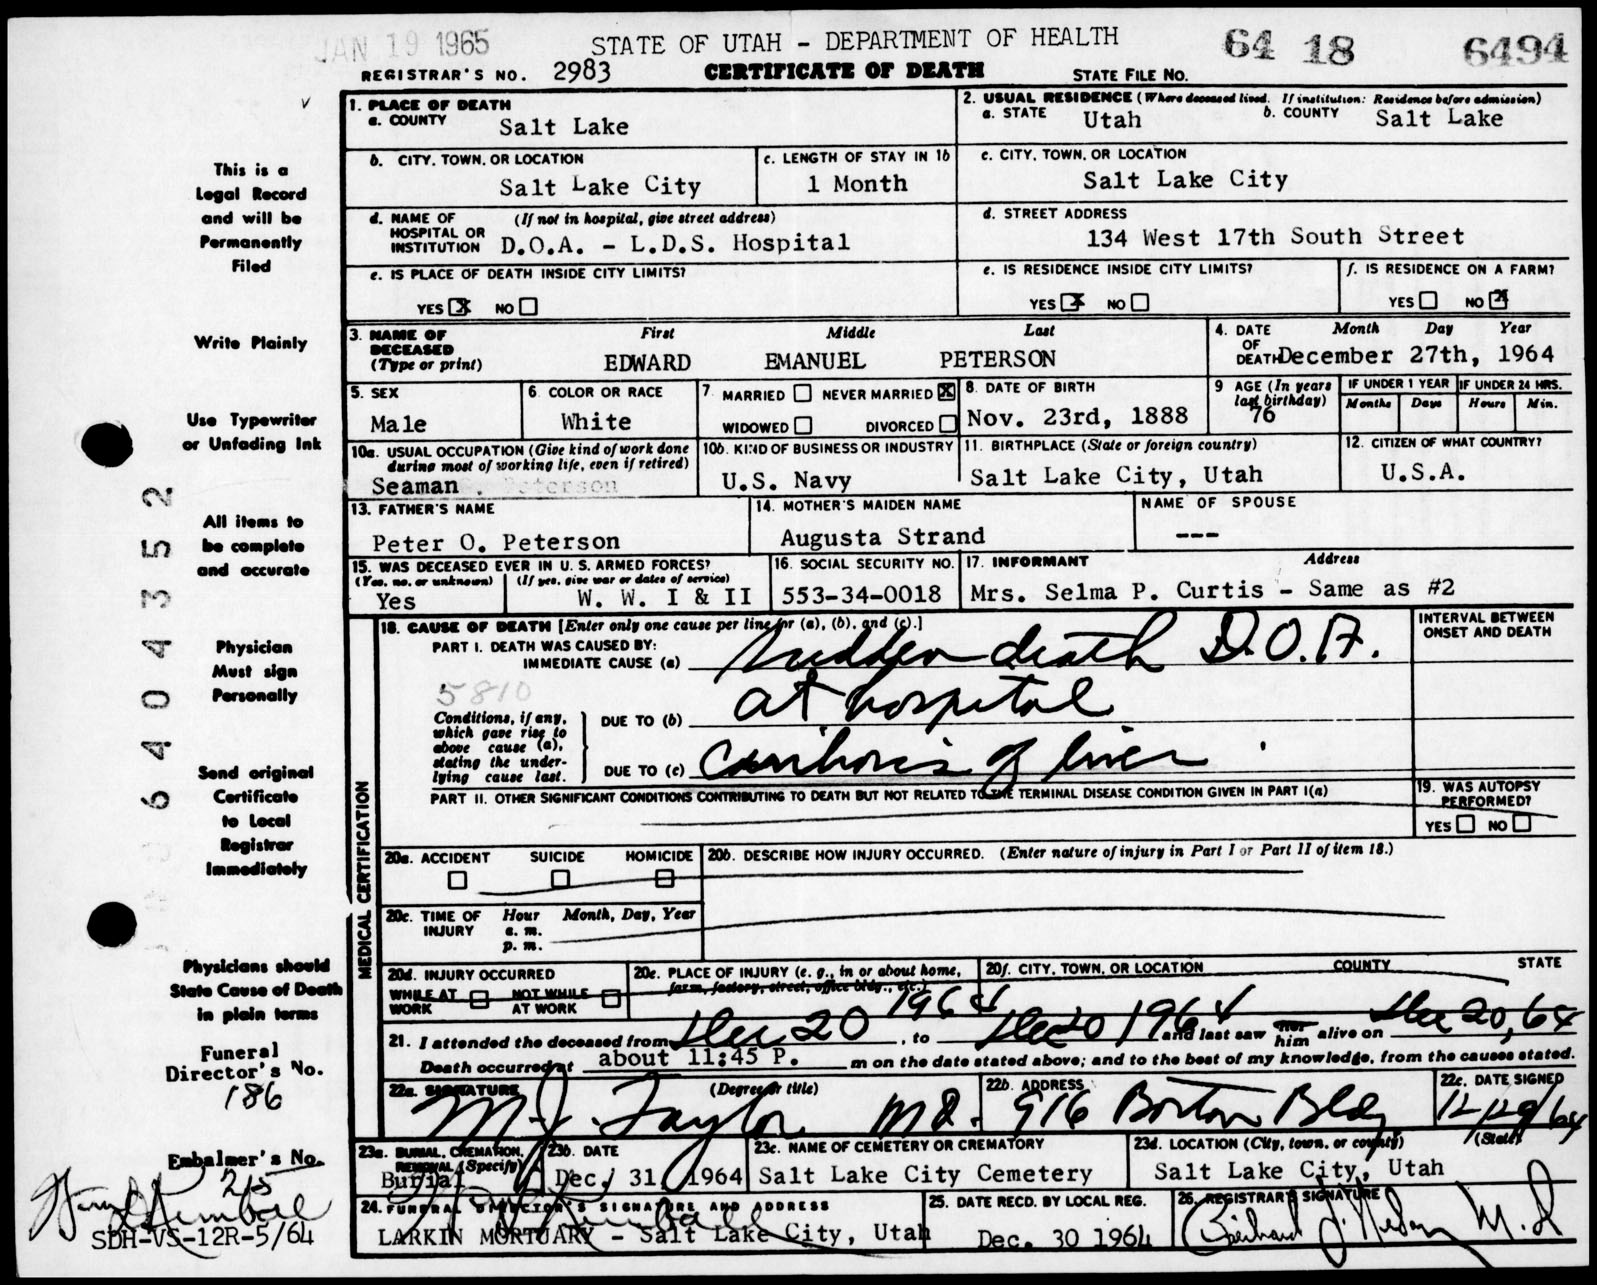 JAN 19 1965
STATE OF UTAH - DEPARTMENT OF HEALTH
64 18 6494
REGISTRAR'S NO. 2983 CERTIFICATE OF DEATH STATE FILE No.
1. PLACE OF DEATH
a. COUNTY Salt Lake
2. USUAL RESIDENCE (Where deceased lived. If institution: Residence before admission)
a. STATE Utah b. COUNTY Salt Lake
b. CITY, TOWN, OR LOCATION Salt Lake City
c. LENGTH OF STAY IN 1b 1 Month
c. CITY, TOWN, OR LOCATION Salt Lake City
d. NAME OF HOSPITAL OR INSTITUTION (If not in hospital, give street address) D.O.A. - L.D.S. Hospital
d. STREET ADDRESS 134 West 17th South Street
e. IS PLACE OF DEATH INSIDE CITY LIMITS?
YES X NO
e. IS RESIDENCE INSIDE CITY LIMITS?
YES X NO
f. IS RESIDENCE ON A FARM?
YES NO X
3. NAME OF DECEASED (Type or print)
First Middle Last
EDWARD EMANUEL PETERSON
4. DATE OF DEATH Month Day Year
December 27th, 1964
5. SEX Male
6. COLOR OR RACE White
7. MARRIED NEVER MARRIED X
WIDOWED DIVORCED
8. DATE OF BIRTH Nov. 23rd, 1888
9 AGE (In years last birthday) 76
IF UNDER 1 YEAR Months Days
IF UNDER 24 HRS. Hours Min.
10a. USUAL OCCUPATION (Give kind of work done during most of working life, even if retired)
Seaman . Peterson
10b. KIND OF BUSINESS OR INDUSTRY U.S. Navy
11. BIRTHPLACE (State or foreign country) Salt Lake City, Utah
12. CITIZEN OF WHAT COUNTRY? U.S.A.
13. FATHER'S NAME Peter O. Peterson
14. MOTHER'S MAIDEN NAME Augusta Strand
NAME OF SPOUSE ---
15. WAS DECEASED EVER IN U. S. ARMED FORCES?
(Yes, no, or unknown) (If yes, give war or dates of service)
Yes W. W. I & II
16. SOCIAL SECURITY NO. 553-34-0018
17. INFORMANT Address
Mrs. Selma P. Curtis - Same as #2
18. CAUSE OF DEATH [Enter only one cause per line for (a), (b), and (c).]
INTERVAL BETWEEN ONSET AND DEATH
PART I. DEATH WAS CAUSED BY:
IMMEDIATE CAUSE (a) Sudden death D.O.A.
5810
Conditions, if any, which gave rise to above cause (a), stating the underlying cause last.
DUE TO (b) at hospital
DUE TO (c) cirrhosis of liver
PART II. OTHER SIGNIFICANT CONDITIONS CONTRIBUTING TO DEATH BUT NOT RELATED TO THE TERMINAL DISEASE CONDITION GIVEN IN PART I(a)
19. WAS AUTOPSY PERFORMED?
YES NO
MEDICAL CERTIFICATION
20a. ACCIDENT SUICIDE HOMICIDE
20b. DESCRIBE HOW INJURY OCCURRED. (Enter nature of injury in Part I or Part II of item 18.)
20c. TIME OF INJURY Hour Month, Day, Year
a. m.
p. m.
20d. INJURY OCCURRED
WHILE AT WORK NOT WHILE AT WORK
20e. PLACE OF INJURY (e. g., in or about home, farm, factory, street, office bldg., etc.)
20f. CITY, TOWN, OR LOCATION COUNTY STATE
21. I attended the deceased from Dec 20 1964, to Dec 20 1964 and last saw her him alive on Dec 20, 64
Death occurred at about 11:45 P. m on the date stated above; and to the best of my knowledge, from the causes stated.
22a. SIGNATURE (Degree or title) M. J. Taylor MD.
22b. ADDRESS 916 Boston Bldg
22c. DATE SIGNED 12/29/64
23a. BURIAL, CREMATION, REMOVAL (Specify) Burial
23b. DATE Dec. 31, 1964
23c. NAME OF CEMETERY OR CREMATORY Salt Lake City Cemetery
23d. LOCATION (City, town, or county) (State) Salt Lake City, Utah
24. FUNERAL DIRECTOR'S SIGNATURE AND ADDRESS
LARKIN MORTUARY - Salt Lake City, Utah
25. DATE RECD. BY LOCAL REG. Dec. 30 1964
26. REGISTRAR'S SIGNATURE
M.D
This is a
Legal Record
and will be
Permanently
Filed
Write Plainly
Use Typewriter
or Unfading Ink
All items to
be complete
and accurate
Physician
Must sign
Personally
Send original
Certificate
to Local
Registrar
Immediately
Physicians should
State Cause of Death
in plain terms
Funeral
Director's No.
186
Embalmer's No.
215
SDH-VS-12R-5/64
6404352